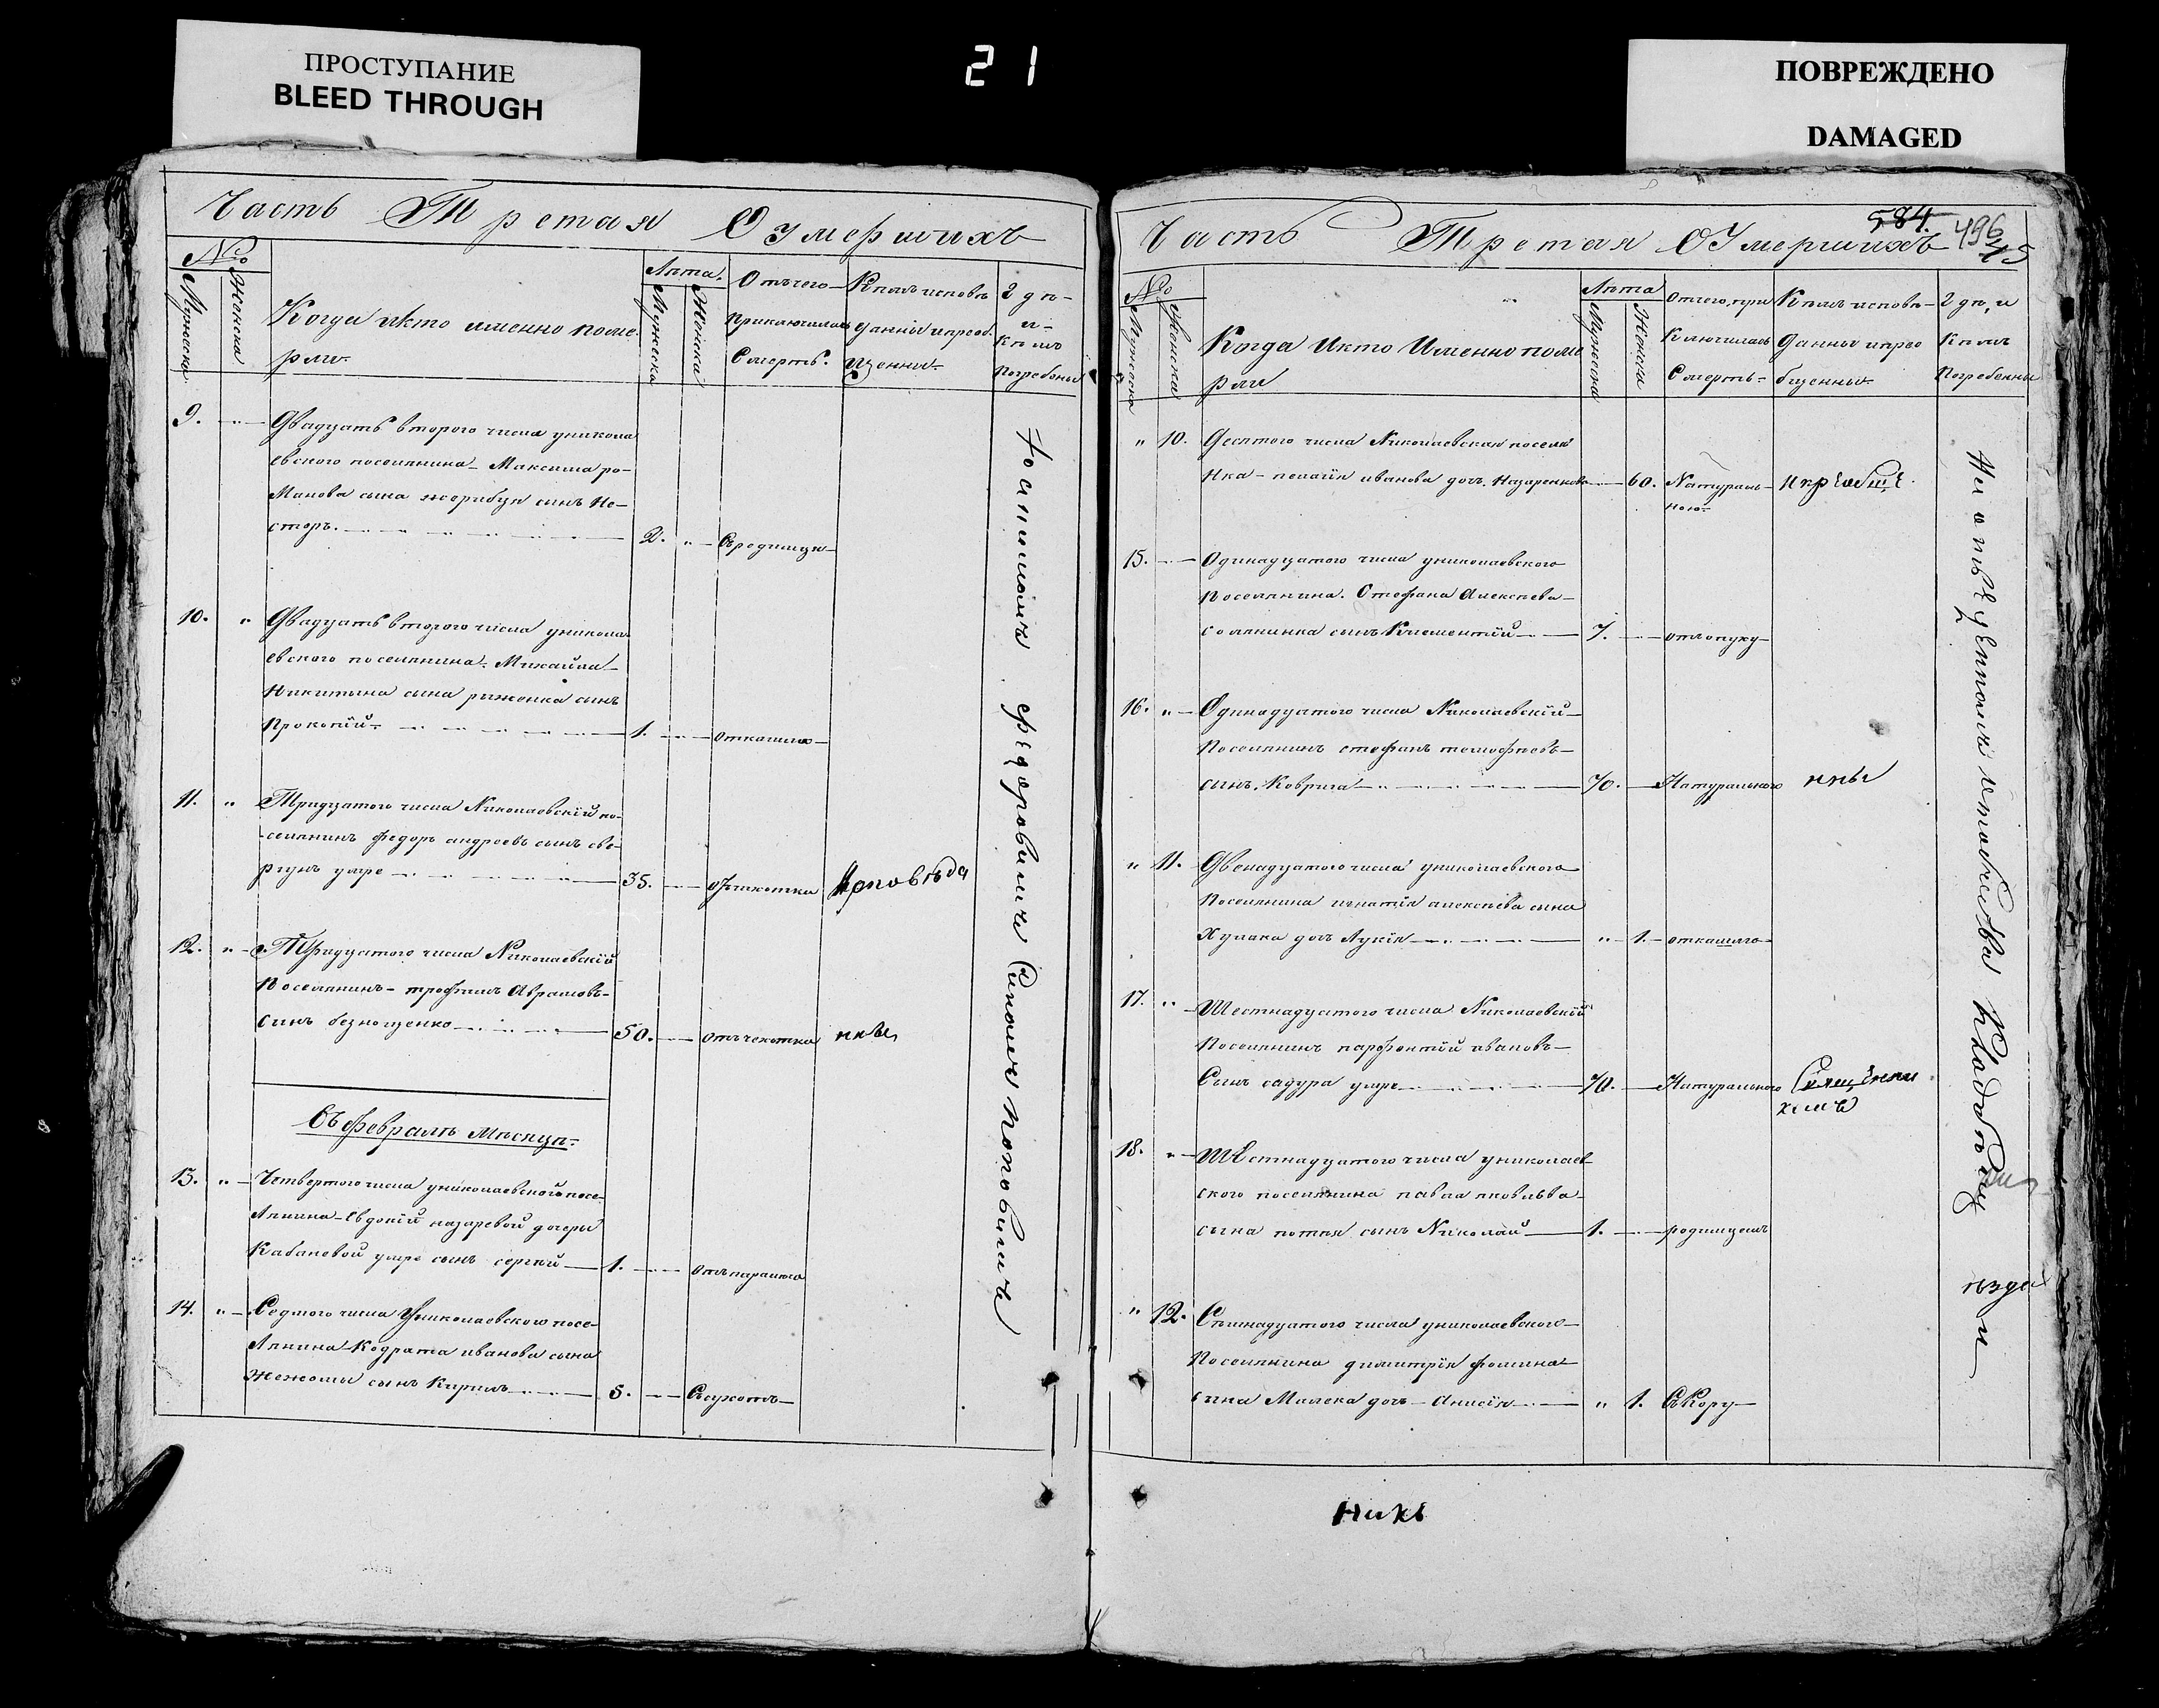 ПРОСТУПАНИЕ
BLEED THROUGH
21
ПОВРЕЖДЕНО
DAMAGED
Часть Третая Оумершихъ
№
Мужеска
Женска
Когда икто именно поме
рли
Лѣта
Мужеска
Женска
Отъчего
приключилась
Смерть
Кѣмъ исповѣ
даны и преоб
щенны
Где
и
Кѣмъ
Погребены
9. " Двадцать второго числа уникола
евского поселянина Максима ро-
манова сына жерибця сынъ Не-
сторъ. 2. " Съ родимця
10. " Двадцать второго числа уникола
евского поселянина Михайла
Никитина сына рыженка сынъ
Прокопїй 1. " откашлю
11. " Тридцятого числа Николаевскїй по-
селянинъ федоръ андреевъ сынъ све-
ргунъ умре 35. отъчихотки Исповѣда
12. " Тридцятого числа Николаевскїй
Поселянинъ трофимъ Аврамовъ
Сынъ безнощенко 50. отъчихотки нны
Съ февралѣ Мѣсяцѣ
13. " Четвертого числа униколаевского посе-
лянина Евдокїи назаревой дочеры
Кабановой умре сынъ сергѣй 1. отъпаралича
14. " Седмого числа Униколаевского посе-
лянина Кодрата иванова сына
Жежомы сынъ Кирилъ 5. Съсухотъ
федоровичъ Симоновъ Поповичъ
Часть Третая ОУмершихъ
584. 496
45
№
Мужеска
Женска
Когда Икто Именно поме
рли
Лѣта
Мужеска
Женска
Отчего, при
ключилась
Смерть
Кѣмъ исповѣ-
даны и прео
бщенны
Где, и
Кѣмъ
Погребенны
" 10. Десятого числа Николаевская поселя
нка пелагїя иванова дочь Назаренкова 60. Натураль-
ною и преобще
15. Одинадцатого числа униколаевского
Поселянина Стефана Алексѣева
солянника сынъ Климентїй 7. отъ опуху
16. " Одинадцятого числа Николаевскїй
Поселянинъ стефанъ тимофѣевъ
сынъ Коврига 70. Натурального нны
" 11. Двенадцатого числа униколаевского
Поселянина игнатїя алексѣева сына
Хулака дочъ Лукїя " 1. откашлю
17. " Шестнадцятого числа Николаевскїй
Поселянинъ парфентїй ивановъ
Сынъ садура умре 70. Натурального Священни
комъ
18. " Шестнадцятого числа униколаев-
ского поселянина павла яковлева
сына потѣя сынъ Николай 1. родимцемъ
" 12. Сѣмнадцятого числа униколаевского
Поселянина димитрїя фомина
сына Малека дочъ Анисїя " 1. Съ Кору
Кладбищ
и
никъ